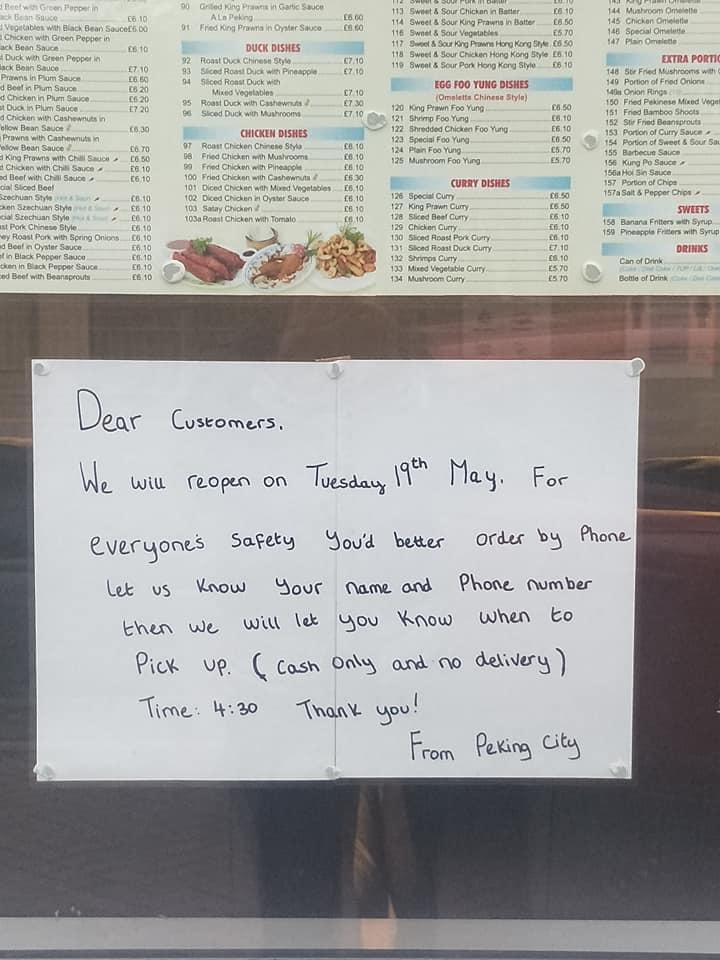 d Beef with Green Pepper in
ack Bean Sauce £6.10
d Vegetables with Black Bean Sauce £6.00
d Chicken with Green Pepper in
ack Bean Sauce £6.10
t Duck with Green Pepper in
ack Bean Sauce £7.10
Prawns in Plum Sauce £6.60
d Beef in Plum Sauce £6.20
d Chicken in Plum Sauce £6.20
st Duck in Plum Sauce £7.20
d Chicken with Cashewnuts in
ellow Bean Sauce £6.30
Prawns with Cashewnuts in
ellow Bean Sauce £6.70
d King Prawns with Chilli Sauce £6.50
d Chicken with Chilli Sauce £6.10
ed Beef with Chilli Sauce £6.10
cial Sliced Beef
Szechuan Style (Hot & Sour) £6.10
cken Szechuan Style (Hot & Sour) £6.10
cial Szechuan Style (Hot & Sour) £6.10
st Pork Chinese Style £6.10
ney Roast Pork with Spring Onions £6.10
d Beef in Oyster Sauce £6.10
f in Black Pepper Sauce £6.10
cken in Black Pepper Sauce £6.10
ed Beef with Beansprouts £6.10
90 Grilled King Prawns in Garlic Sauce
A La Peking £6.60
91 Fried King Prawns in Oyster Sauce £6.60
DUCK DISHES
92 Roast Duck Chinese Style £7.10
93 Sliced Roast Duck with Pineapple £7.10
94 Sliced Roast Duck with
Mixed Vegetables £7.10
95 Roast Duck with Cashewnuts £7.30
96 Sliced Duck with Mushrooms £7.10
CHICKEN DISHES
97 Roast Chicken Chinese Style £6.10
98 Fried Chicken with Mushrooms £6.10
99 Fried Chicken with Pineapple £6.10
100 Fried Chicken with Cashewnuts £6.30
101 Diced Chicken with Mixed Vegetables £6.10
102 Diced Chicken in Oyster Sauce £6.10
103 Satay Chicken £6.10
103a Roast Chicken with Tomato £6.10
112 Sweet & Sour Pork in Batter £6.10
113 Sweet & Sour Chicken in Batter £6.10
114 Sweet & Sour King Prawns in Batter £6.50
116 Sweet & Sour Vegetables £5.70
117 Sweet & Sour King Prawns Hong Kong Style £6.50
118 Sweet & Sour Chicken Hong Kong Style £6.10
119 Sweet & Sour Pork Hong Kong Style £6.10
EGG FOO YUNG DISHES
(Omelette Chinese Style)
120 King Prawn Foo Yung £6.50
121 Shrimp Foo Yung £6.10
122 Shredded Chicken Foo Yung £6.10
123 Special Foo Yung £6.50
124 Plain Foo Yung £5.70
125 Mushroom Foo Yung £5.70
CURRY DISHES
126 Special Curry £6.50
127 King Prawn Curry £6.50
128 Sliced Beef Curry £6.10
129 Chicken Curry £6.10
130 Sliced Roast Pork Curry £6.10
131 Sliced Roast Duck Curry £7.10
132 Shrimps Curry £6.10
133 Mixed Vegetable Curry £5.70
134 Mushroom Curry £5.70
143 King Prawn Omelette
144 Mushroom Omelette
145 Chicken Omelette
146 Special Omelette
147 Plain Omelette
EXTRA PORTIO
148 Stir Fried Mushrooms with
149 Portion of Fried Onions
149a Onion Rings
150 Fried Pekinese Mixed Veget
151 Fried Bamboo Shoots
152 Stir Fried Beansprouts
153 Portion of Curry Sauce
154 Portion of Sweet & Sour Sau
155 Barbecue Sauce
156 Kung Po Sauce
156a Hoi Sin Sauce
157 Portion of Chips
157a Salt & Pepper Chips
SWEETS
158 Banana Fritters with Syrup
159 Pineapple Fritters with Syrup
DRINKS
Can of Drink
Bottle of Drink
Dear Customers.
We will reopen on Tuesday 19th May. For
everyone's safety you'd better order by Phone
Let us know your name and Phone number
then we will let you know when to
Pick up. (Cash only and no delivery)
Time: 4:30 Thank you!
From Peking City